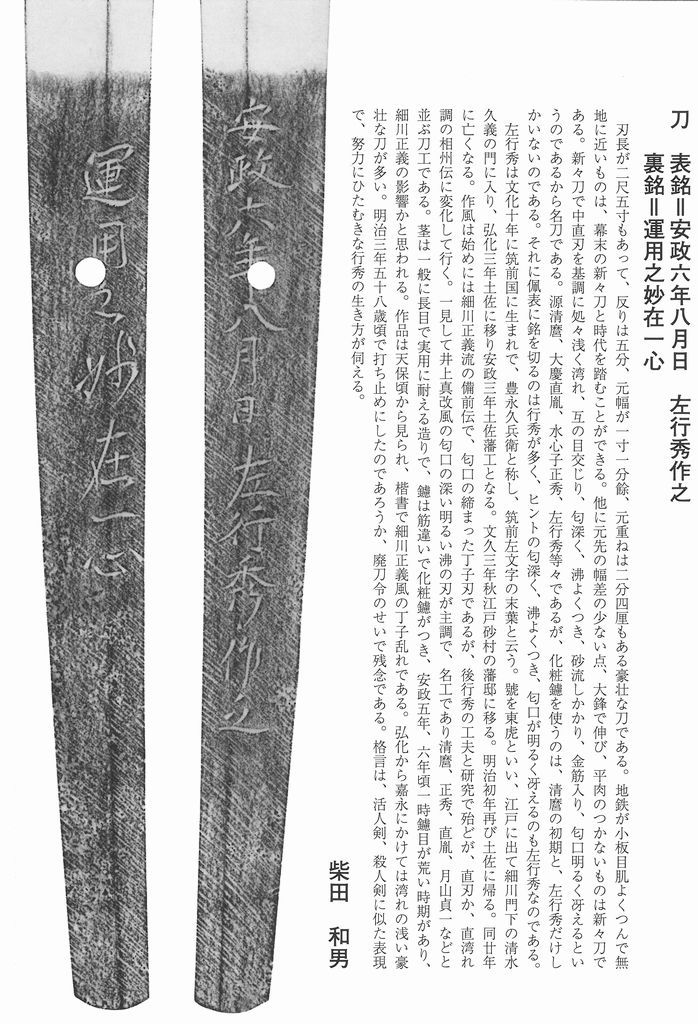 刀　表銘＝安政六年八月日　左行秀作之
裏銘＝運用之妙在一心
刃長が二尺五寸もあって、反りは五分、元幅が一寸一分餘、元重ねは二分四厘もある豪壮な刀である。地鉄が小板目肌よくつんで無
地に近いものは、幕末の新々刀と時代を踏むことができる。他に元先の幅差の少ない点、大鋒で伸び、平肉のつかないものは新々刀で
ある。新々刀で中直刃を基調に処々浅く湾れ、互の目交じり、匂深く、沸よくつき、砂流しかかり、金筋入り、匂口明るく冴えるとい
うのであるから名刀である。源清麿、大慶直胤、水心子正秀、左行秀等々であるが、化粧鑢を使うのは、清麿の初期と、左行秀だけし
かいないのである。それに佩表に銘を切るのは行秀が多く、ヒントの匂深く、沸よくつき、匂口が明るく冴えるのも左行秀なのである。
左行秀は文化十年に筑前国に生まれで、豊永久兵衛と称し、筑前左文字の末葉と云う。號を東虎といい、江戸に出て細川門下の清水
久義の門に入り、弘化三年土佐に移り安政三年土佐藩工となる。文久三年秋江戸砂村の藩邸に移る。明治初年再び土佐に帰る。同廿年
に亡くなる。作風は始めには細川正義流の備前伝で、匂口の締まった丁子刃であるが、後行秀の工夫と研究で殆どが、直刃か、直湾れ
調の相州伝に変化して行く。一見して井上真改風の匂口の深い明るい沸の刃が主調で、名工であり清麿、正秀、直胤、月山貞一などと
並ぶ刀工である。茎は一般に長目で実用に耐える造りで、鑢は筋違いで化粧鑢がつき、安政五年、六年頃一時鑢目が荒い時期があり、
細川正義の影響かと思われる。作品は天保頃から見られ、楷書で細川正義風の丁子乱れである。弘化から嘉永にかけては湾れの浅い豪
壮な刀が多い。明治三年五十八歳頃で打ち止めにしたのであろうか、廃刀令のせいで残念である。格言は、活人剣、殺人剣に似た表現
で、努力にひたむきな行秀の生き方が伺える。
柴田　和男
安政六年八月日左行秀作之
運用之妙在一心